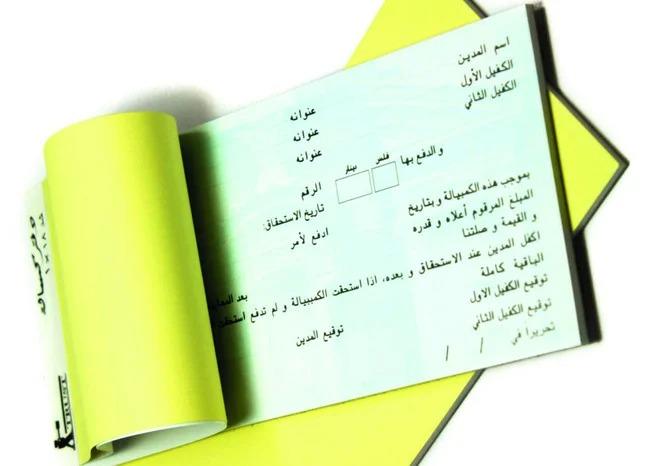 اسم المدين
عنوانه
الكفيل الأول
عنوانه
الكفيل الثاني
عنوانه
و الدفع بها
فلس
دينار
الرقم
بموجب هذه الكمبيالة و بتاريخ
تاريخ الاستحقاق:
المبلغ المرقوم أعلاه و قدره
ادفع لأمر
و القيمة و صلتنا
اكفل المدين عند الاستحقاق و بعده، اذا استحقت الكمبيالة و لم تدفع استحقت
بعد
الباقية كاملة
توقيع الكفيل الاول
توقيع المدين
توقيع الكفيل الثاني
تحريرا في / /
دفتر كمبيالة
TRUST